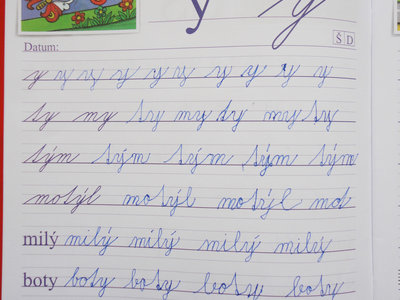 y y
Š D
Datum:
y y y y y y y y y y
ty my ty my ty my ty
tým tým tým tým tým
motýl motýl motýl mo
milý milý milý milý milý
boty boty boty boty boty